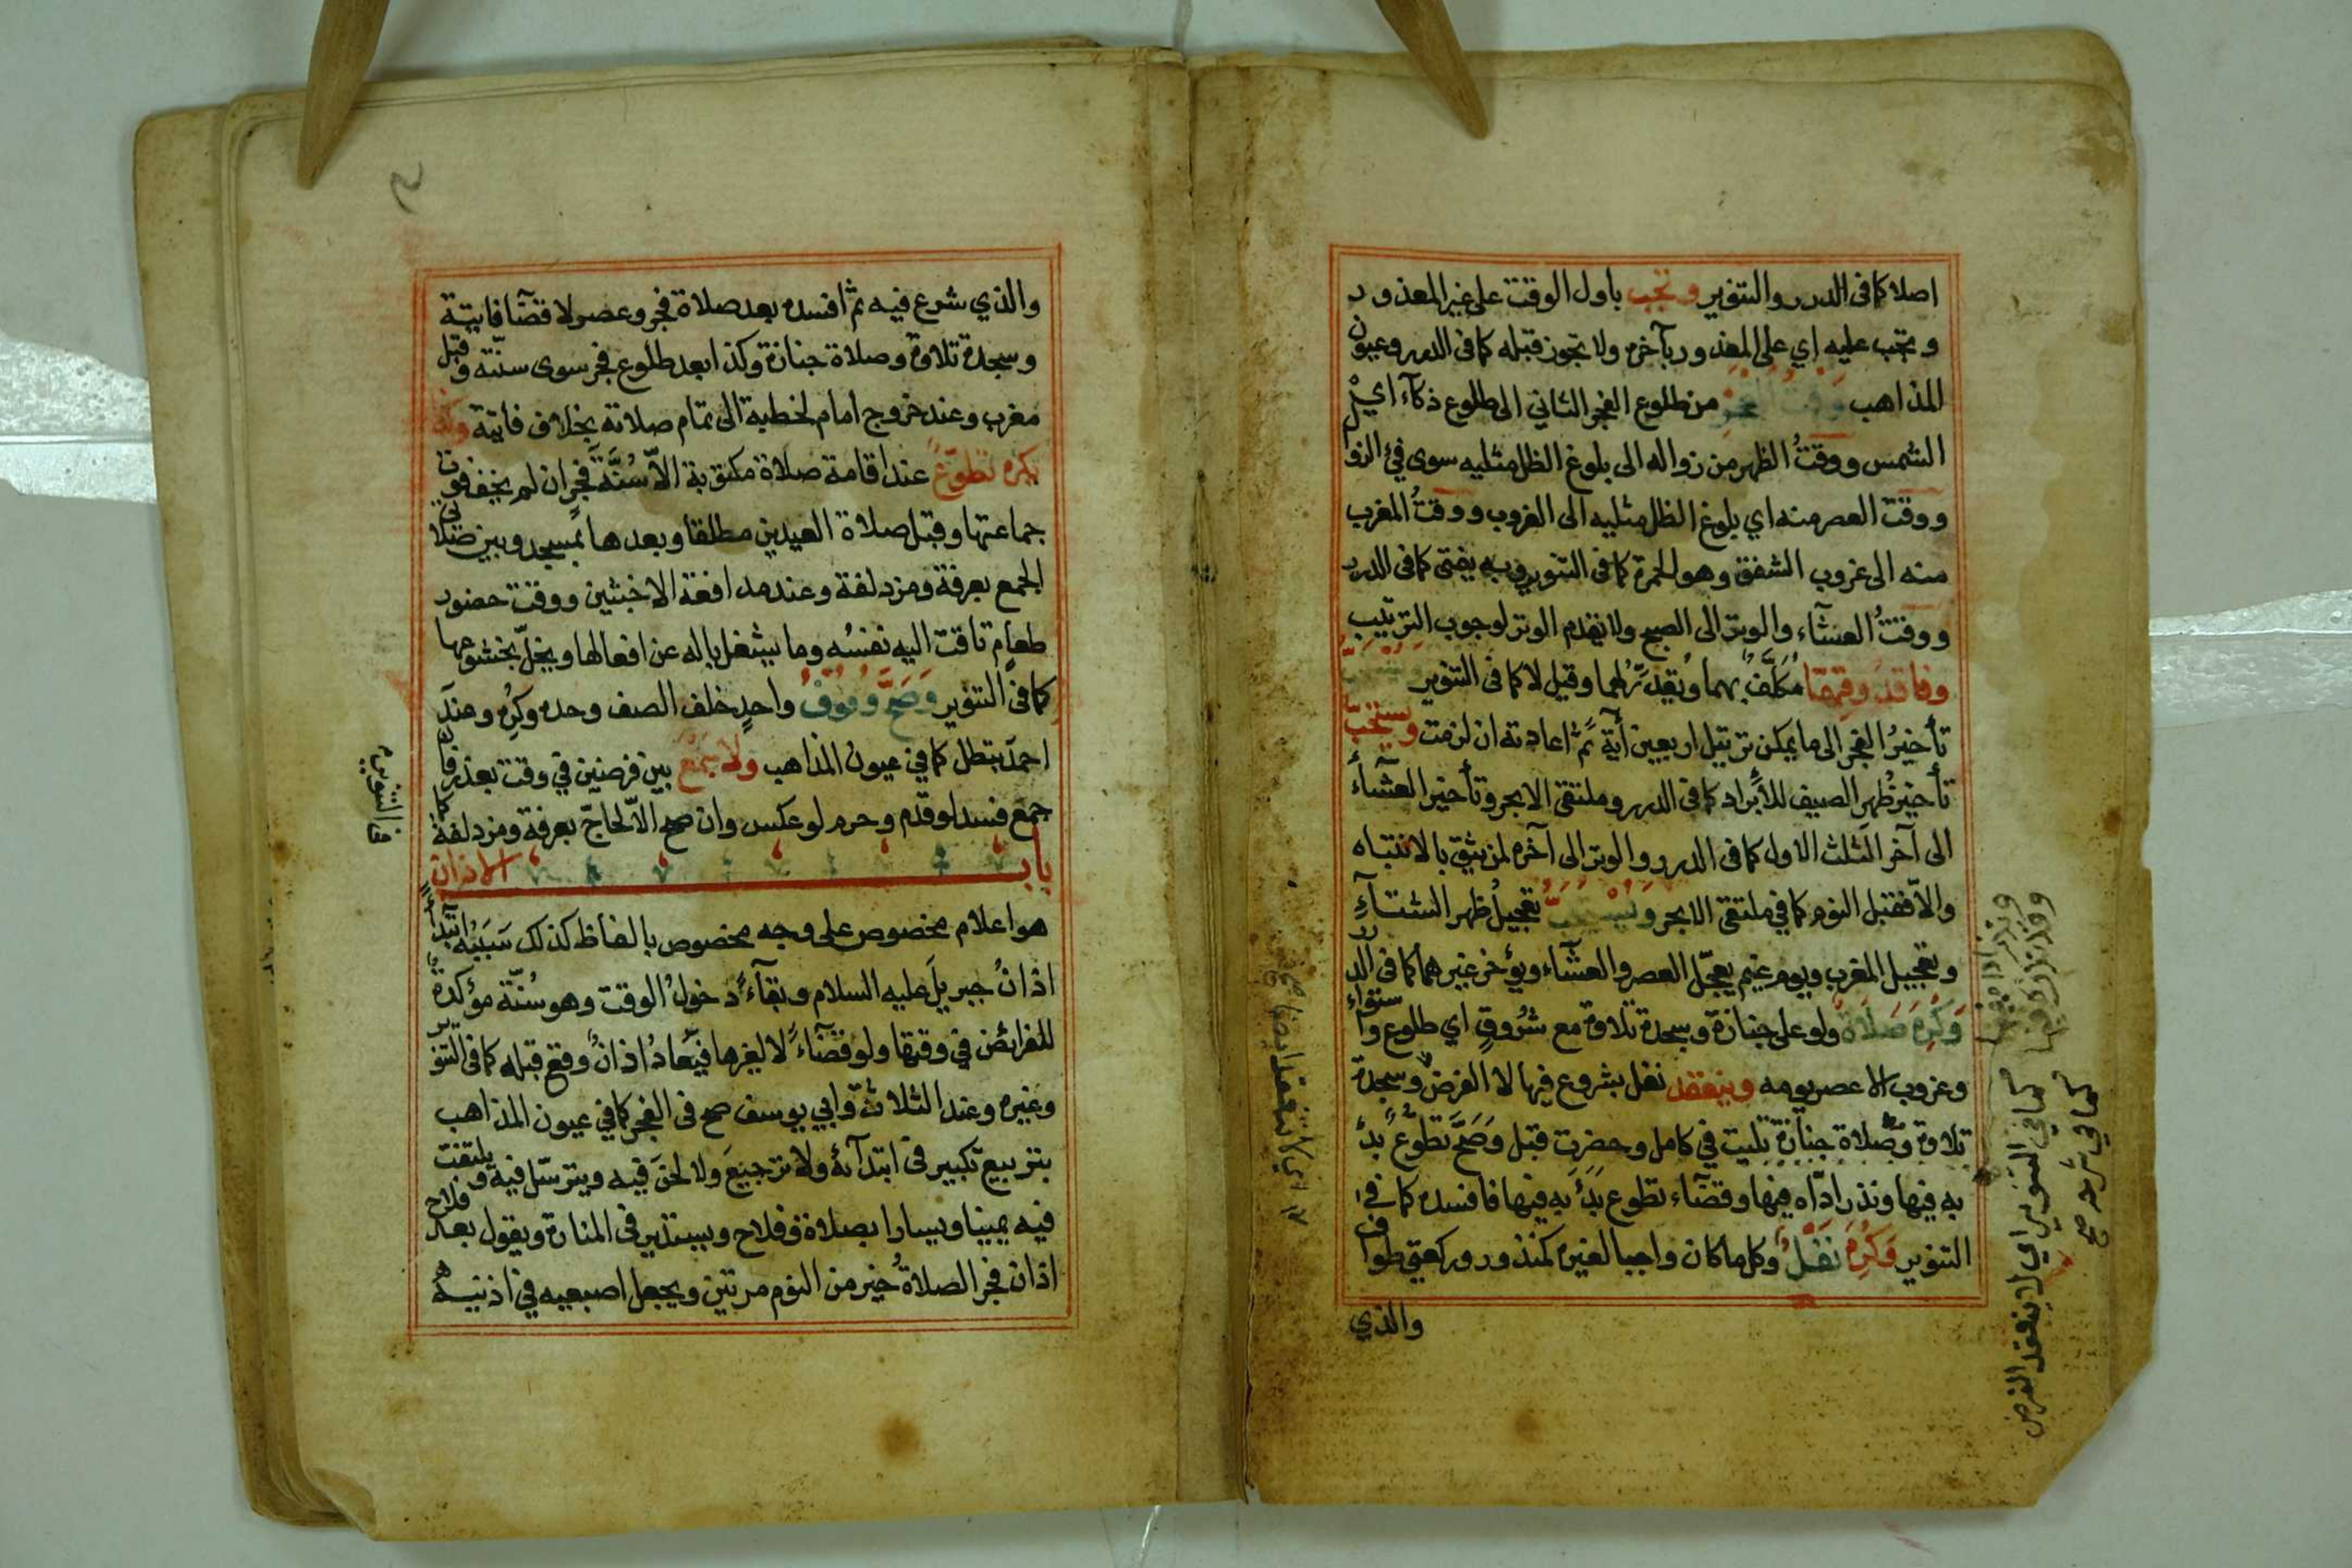 اصلا كما فى الدرر والتنوير وتجب باول الوقت على غير المعذور
وتجب عليه اي على المعذور بآخره ولا تجوز قبله كما فى الدرر وعيون
المذاهب وقت الفجر من طلوع الفجر الثاني الى طلوع ذكآء اي
الشمس ووقتُ الظهر من زواله الى بلوغ الظل مثليه سوى فئ الزوال
ووقت العصر منه اي بلوغ الظل مثليه الى الغروب ووقتُ المغرب
منه الى غروب الشفق وهو الحمرة كما فى التنوير وبه يفتى كما فى الدرر
ووقتُ العشآء والوتر الى الصبح ولا يقدم الوتر لوجوب الترتيب
وفاقد وقتهما مُكَلَّفٌ بهما ويُقَدِّرُ لهما وقيل لا كما فى التنوير
تأخيرُ الفجر الى ما يمكن ترتيل اربعين آية ثمّ اعادته ان لزمت ويستحبّ
تأخيرُ ظهر الصيف للأبراد كما فى الدرر وملتقى الابحر وتأخير العشآء
الى آخر الثلث الاول كما فى الدرر والوتر الى آخره لمن يثق بالانتباه
والاّ فقبل النوم كما في ملتقى الابحر ويستحبّ تعجيلُ ظهر الشتآءِ
وتعجيل المغرب ويوم غيم يعجّل العصر والعشآء ويؤخر غيرهما كما فى الدرر
وَكُرِهَ صَلَاةٌ ولو على جنازة وسجدة تلاوة مع شُرُوقٍ اي طلوع واستواء
وغروب الا عصر يومه وينعقد نفل بشروع فيها لا الفرض وسجدة
تلاوة وصلاة جنازة تليت في كامل وحضرت قبل وَصَحَّ تطوُّع بدئ
به فيها ونذر ادّاه فيها وقضآء تطوع بَدَأَ به فيها فافسده كما فى
التنوير وَكُرِهَ نَفْلٌ وكل ما كان واجبا لغيره كمنذور وركعتي طواف
والذي
كما في التنوير اي لا ينعقد الفرض
كما في شرحه صح
والذي شرع فيه ثمّ افسده بعد صلاة فجر وعصر لا قضآ فايتة
وسجدة تلاوة وصلاة جنازة وكذا بعد طلوع فجر سوى سنّته وقبل
مغرب وعند خروج امام لخطبة الى تمام صلاته بخلاف فايتة وكذا
يكره تطوّعٌ عند اقامة صلاة مكتوبة الاّ سُنَّةَ فجرٍ ان لم يخف فوت
جماعتها وقبل صلاة العيدين مطلقا وبعدها بمسجد وبين صلاتى
الجمع بعرفة ومزدلفة وعند مدافعة الاخبثين ووقت حضور
طعامٍ تاقت اليه نفسُه وما يشغل باله عن افعالها ويخلّ بخشوعها
كما فى التنوير وَصَحَّ وُقُوفُ واحدٍ خلف الصف وحده وكرِه وعندَ
احمدَ يبطل كما في عيون المذاهب ولا يجمع بين فرضين في وقت بعذر فان
جمع فسد لو قدّم وحرم لو عكس وان صح الاّ لحاجّ بعرفة ومزدلفة كما
فى التنوير
باب الاذان
هو اعلام مخصوص على وجه مخصوص بالفاظ كذلك سَبَبُه ابتدآء
اذانُ جبريلَ عليه السلام وبقآءً دخولُ الوقت وهو سُنّة مؤكدة
للفرائض في وقتها ولو قضآءً لا لغيرها فيُعادُ اذانٌ وقع قبله كما فى التنوير
وغيره وعند الثلاثة وابي يوسف صح فى الفجر كما في عيون المذاهب
بتربيع تكبير فى ابتدآئه ولا ترجيعَ ولا لحنَ فيه ويترسّل فيه ويلتفت
فيه يمينا ويسارا بصلاة وفلاح ويستدير فى المنارة ويقول بعد فلاح
اذان فجر الصلاةُ خير من النوم مرتين ويجعل اصبعيه في اذنيه